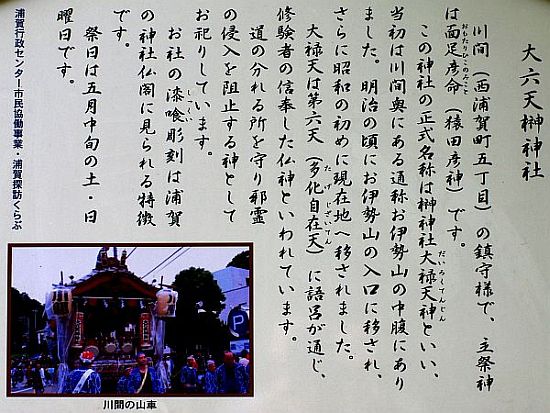 大六天榊神社
川間（西浦賀町五丁目）の鎮守様で、主祭神
は面足彦命（猿田彦神）です。
おもたりひこのみこと
この神社の正式名称は榊神社大祿天神といい、
だいろくてんじん
当初は川間奥にある通称お伊勢山の中腹にあり
ました。明治の頃にお伊勢山の入口に移され、
さらに昭和の初めに現在地へ移されました。
大祿天は第六天（多化自在天）に語呂が通じ、
たげじざいてん
修験者の信奉した仏神といわれています。
道の分れる所を守り邪霊
の侵入を阻止する神として
お祀りしています。
お社の漆喰彫刻は浦賀
しっくい
の神社仏閣に見られる特徴
です。
祭日は五月中旬の土・日
曜日です。
浦賀行政センター市民協働事業・浦賀探訪くらぶ
川間の山車